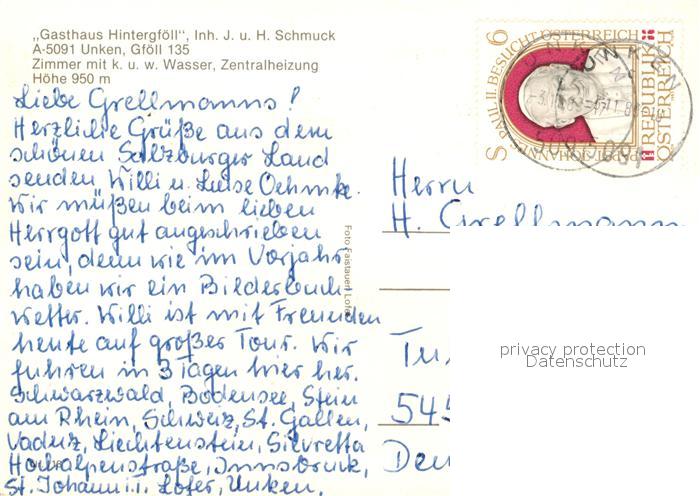 „Gasthaus Hintergföll", Inh. J. u. H. Schmuck
A-5091 Unken, Gföll 135
Zimmer mit k. u. w. Wasser, Zentralheizung
Höhe 950 m
Liebe Grellmanns!
Herzliche Grüße aus dem
schönen Salzburger Land
senden Willi u. Luise Oehmke.
Wir müßen beim lieben
Herrgott gut angeschrieben
sein, denn wie im Vorjahr
haben wir ein Bilderbuch
wetter. Willi ist mit Freunden
heute auf großer Tour. Wir
fuhren in 3 Tagen hier her.
Schwarzwald, Bodensee, Stein
am Rhein, Schweiz, St. Gallen,
Vaduz, Liechtenstein, Silvretta
Hochalpenstraße, Innsbruck,
St. Johann i.T. Lofer, Unken.
Foto Faistauer, Lofer
S 6
PAPST JOHANNES PAUL II. BESUCHT ÖSTERREICH
REPUBLIK
ÖSTERREICH
UNKEN
Herrn
H. Grellmann
privacy protection
Datenschutz